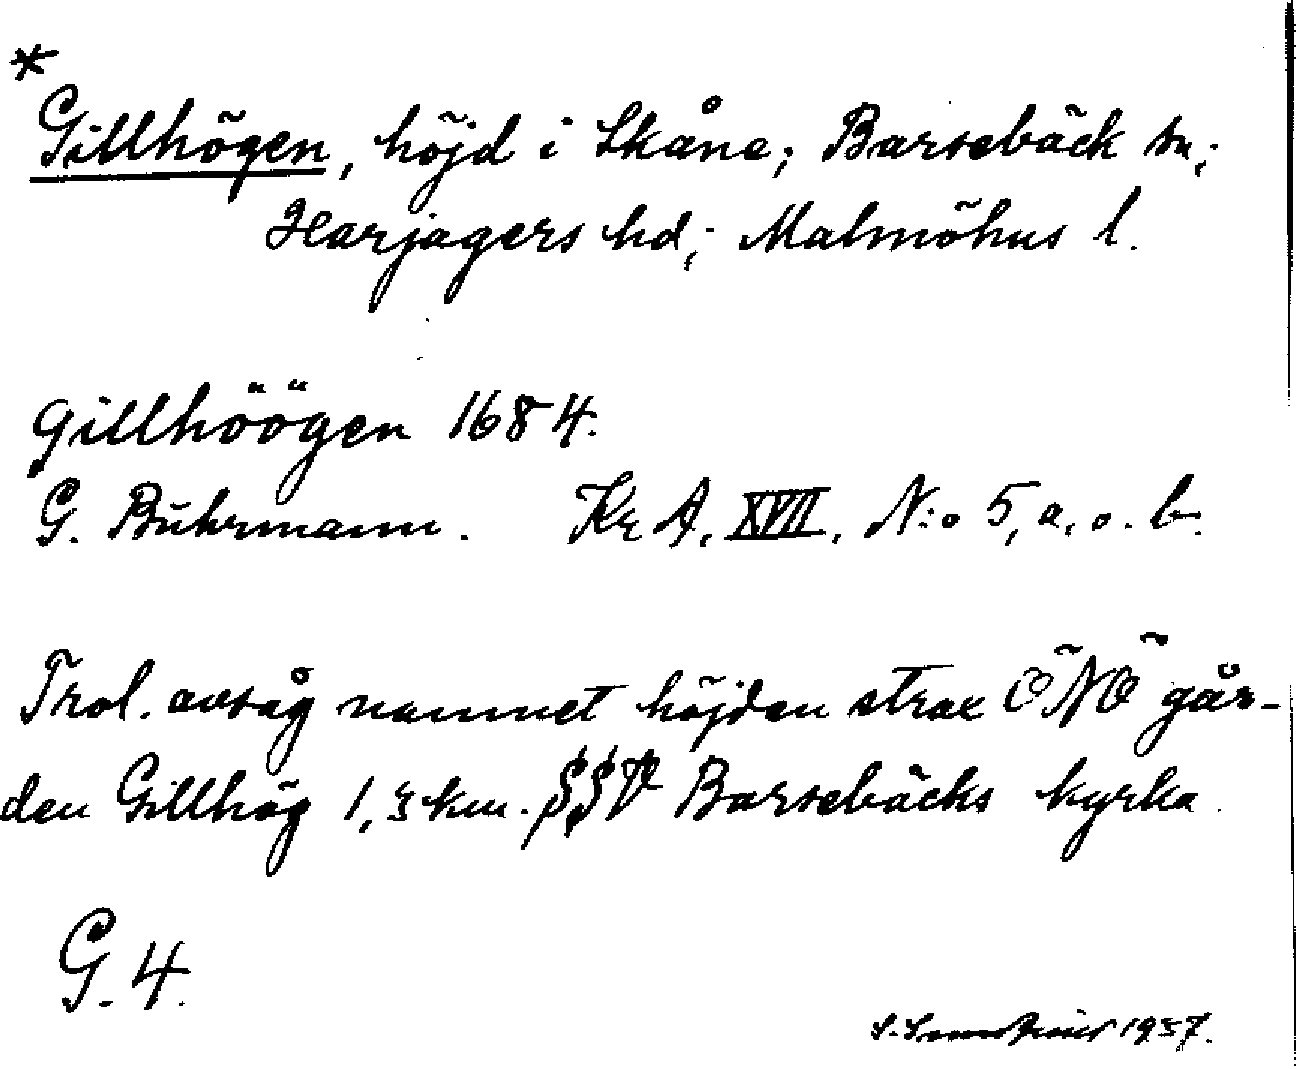 *
Gillhögen, höjd i Skåne; Barsebäck sn;
Harjagers hd; Malmöhus l.
Gillhöögen 1684.
G. Buhrmann. Kr A. XVII. N:o 5, a. o. b.
Trol. avsåg namnet höjden strax ÖNÖ går-
den Gillhög 1,3 km. SSV Barsebäcks kyrka.
G. 4.
S. 1957.